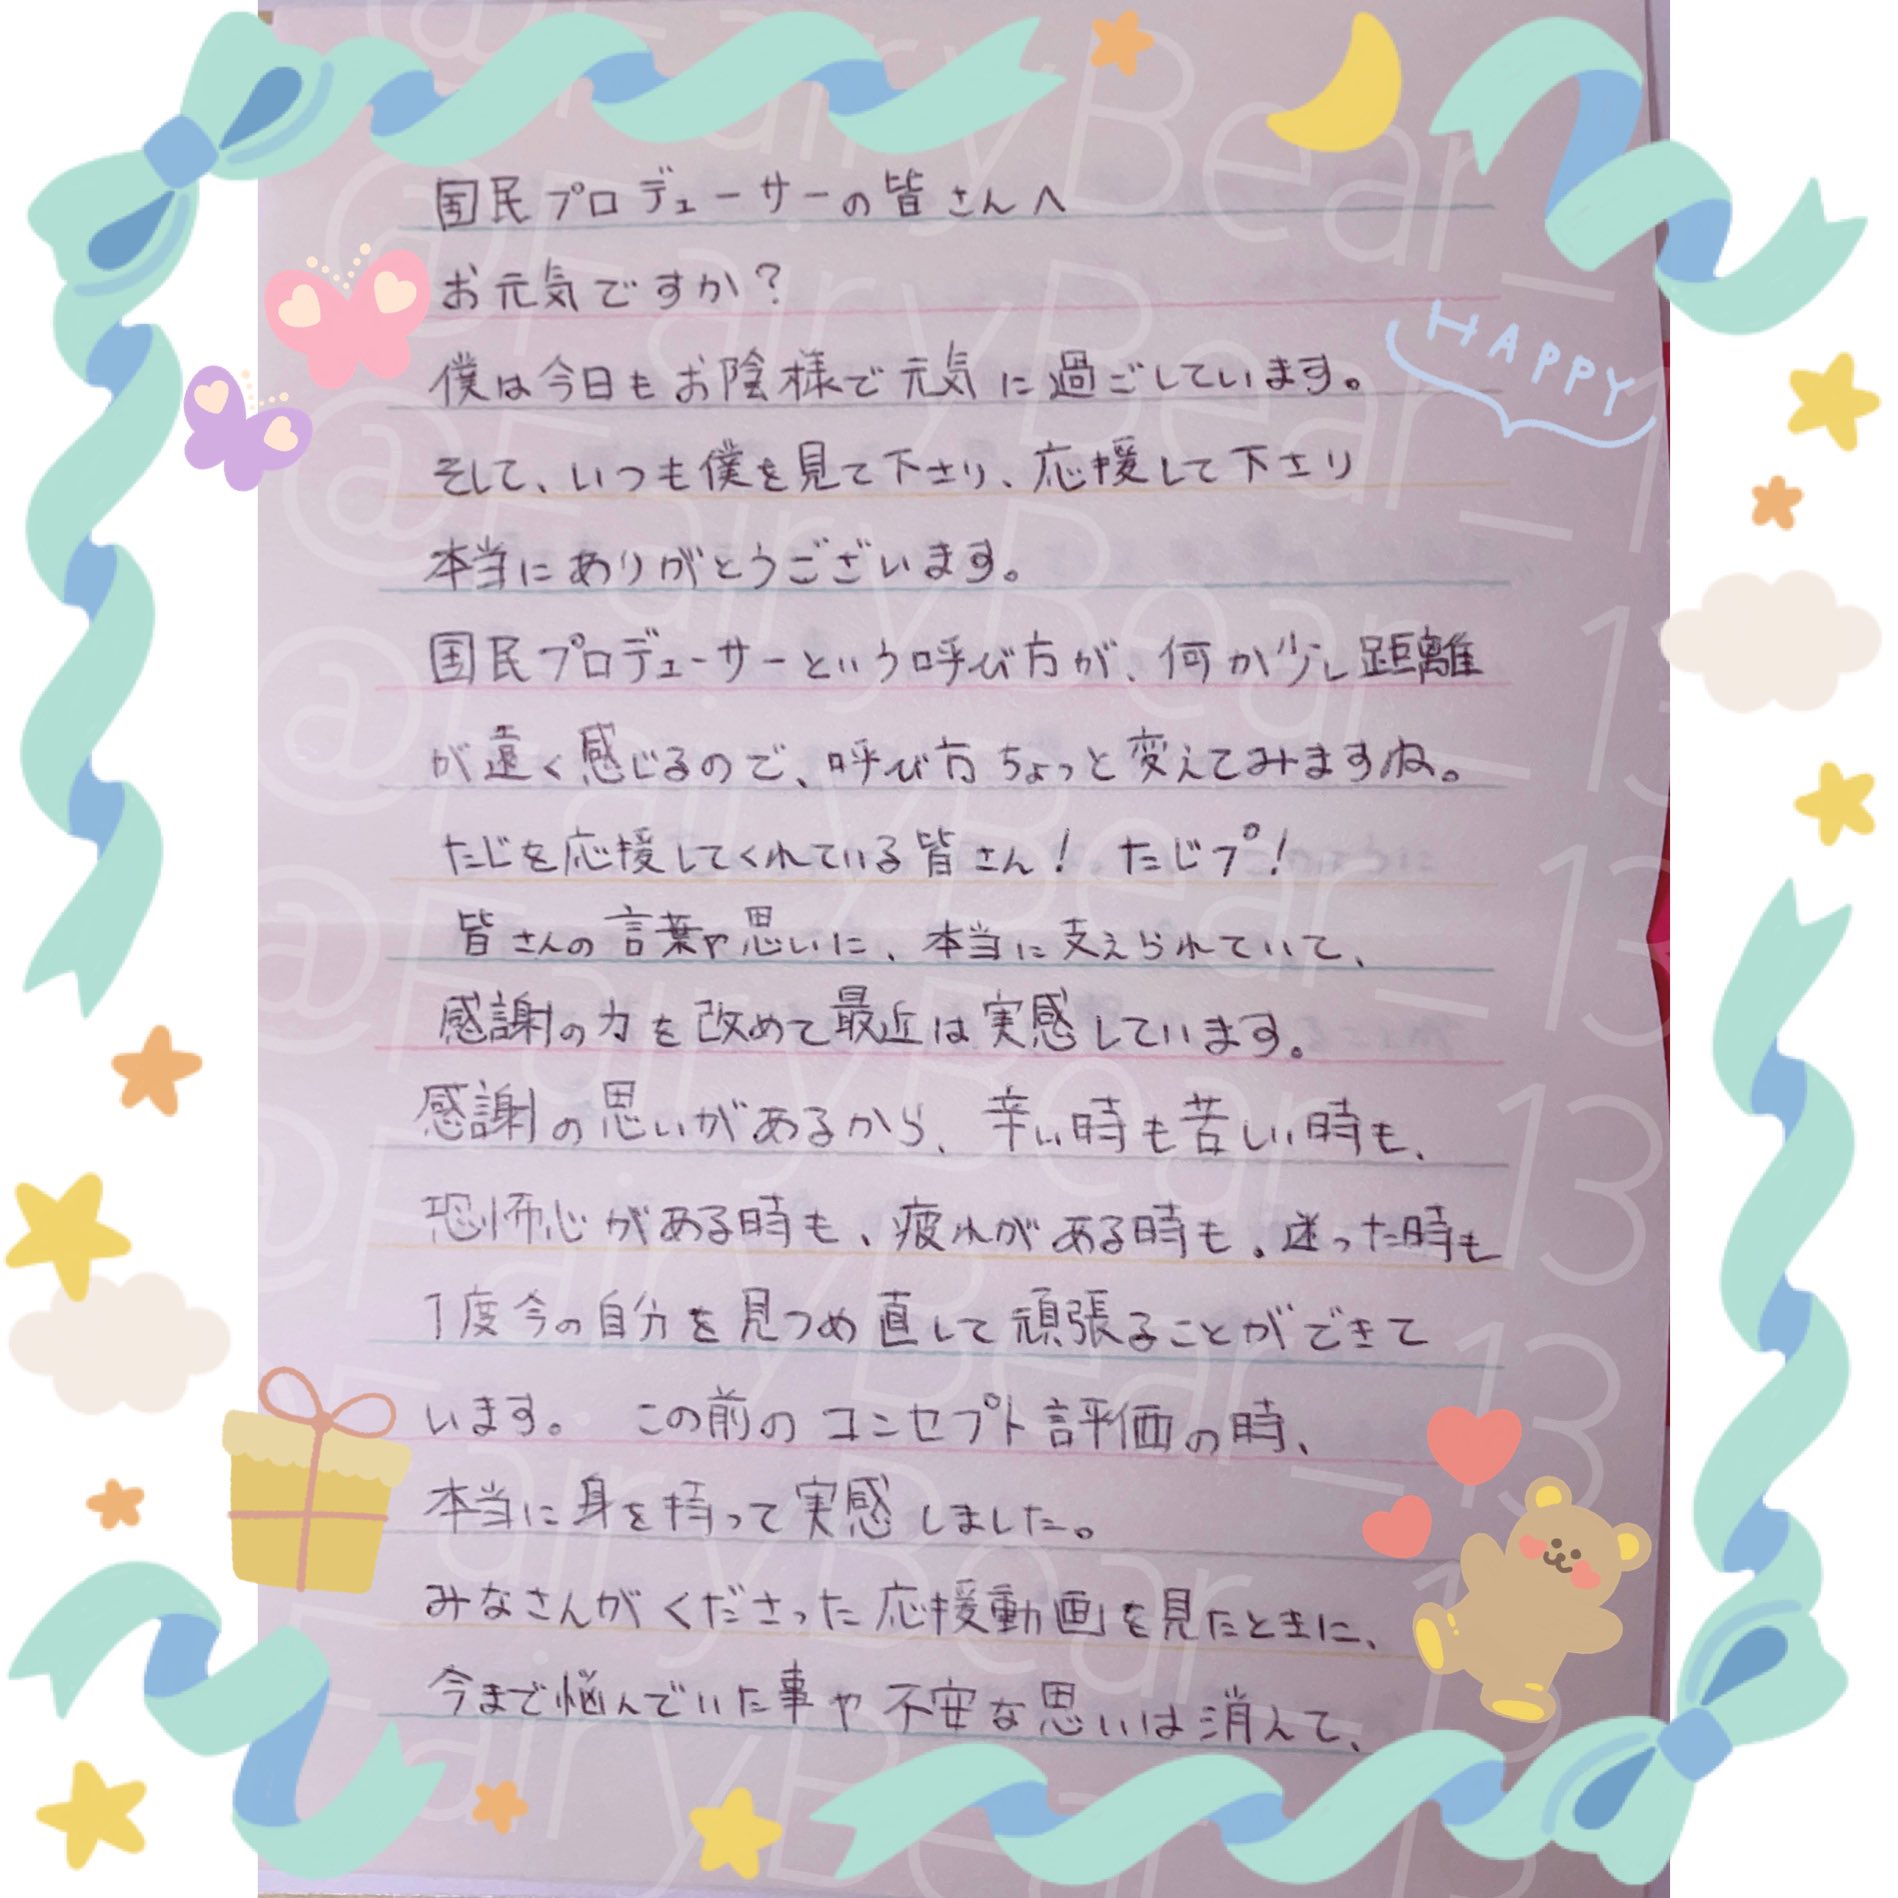 国民プロデューサーの皆さんへ
お元気ですか?
僕は今日もお陰様で元気に過ごしています。
HAPPY
そして、いつも僕を見て下さり、応援して下さり
本当にありがとうございます。
国民プロデューサーという呼び方が、何か少し距離
が遠く感じるので、呼び方ちょっと変えてみますね。
たじを応援してくれている皆さん!たじプ!
皆さんの言葉や思いに、本当に支えられていて、
感謝の力を改めて最近は実感しています。
感謝の思いがあるから、辛い時も苦しい時も、
恐怖心がある時も、疲れがある時も、迷った時も
1度今の自分を見つめ直して頑張ることができて
います。 この前のコンセプト評価の時、
本当に身を持って実感しました。
みなさんがくださった応援動画を見たときに、
今まで悩んでいた事や不安な思いは消えて、
@FairyBear_13